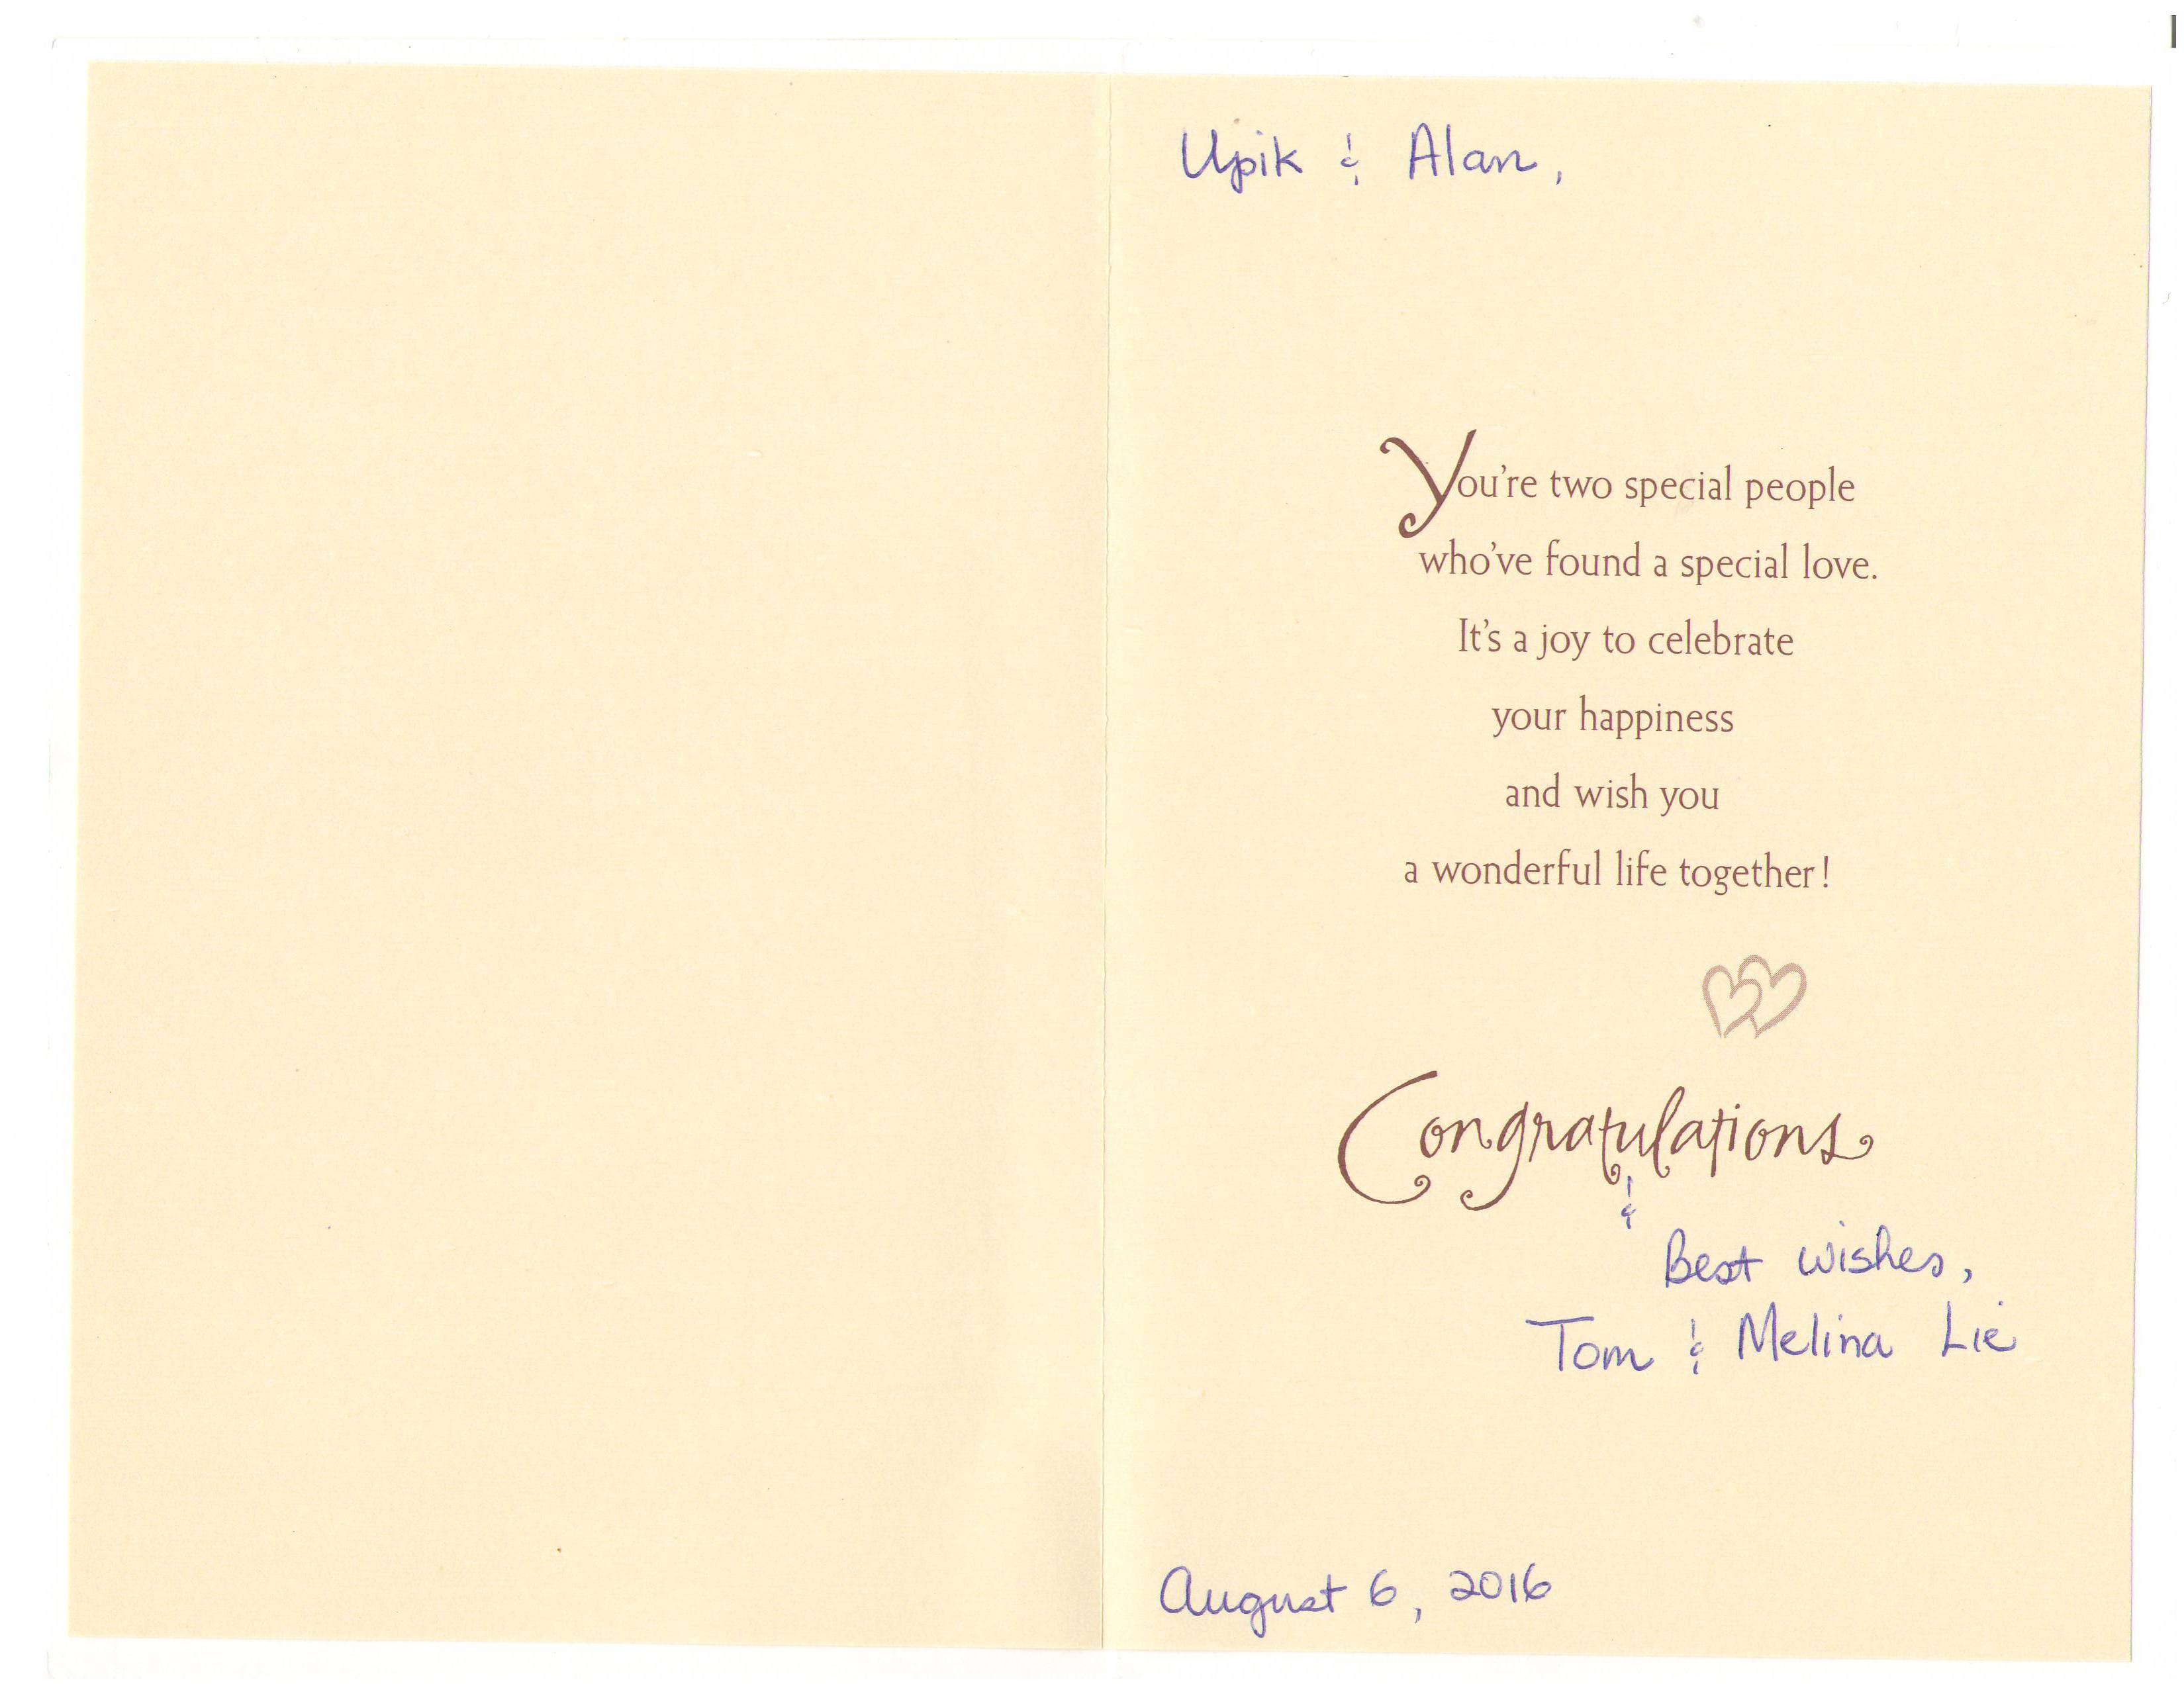 Upik & Alan,
You're two special people
who've found a special love.
It's a joy to celebrate
your happiness
and wish you
a wonderful life together!
Congratulations
&
Best wishes,
Tom & Melina Lie
August 6, 2016